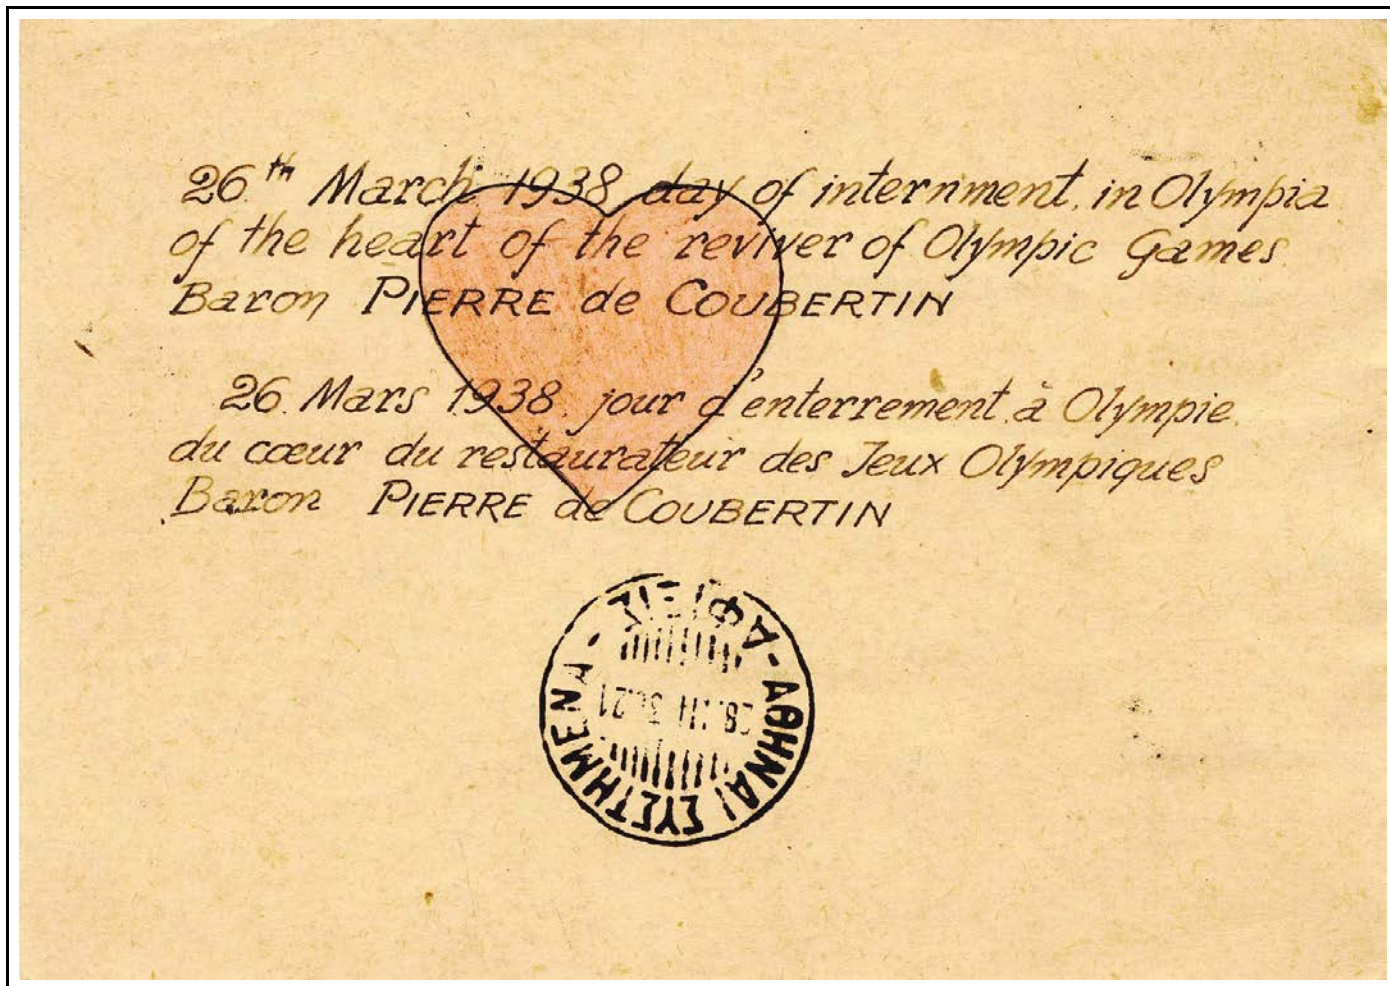 26th March 1938, day of internment, in Olympia
of the heart of the reviver of Olympic Games
Baron PIERRE de COUBERTIN
26. Mars 1938. jour d'enterrement, à Olympie.
du cœur du restaurateur des Jeux Olympiques
Baron PIERRE de COUBERTIN
ΑΘΗΝΑΙ ΣΥΣΤΗΜΕΝΑ - ΑΦΙΞΙΣ -